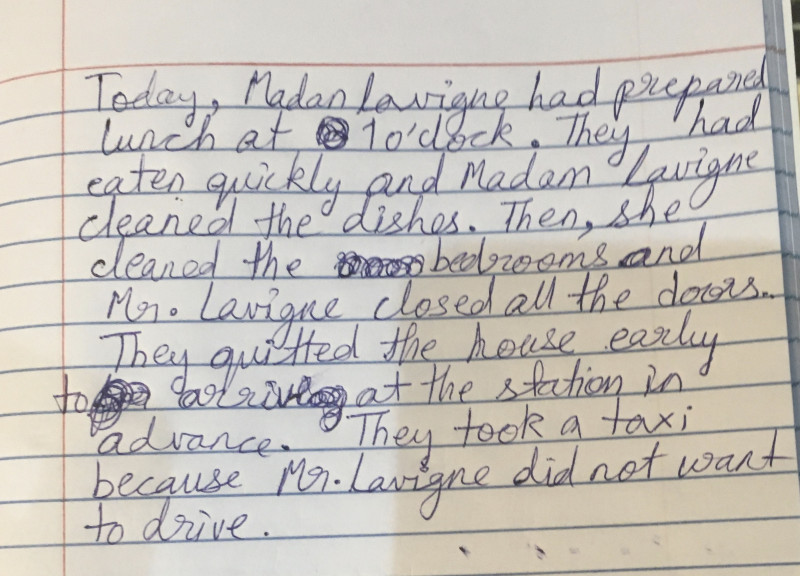 Today, Madan Lavigne had prepared
lunch at 1 o'clock. They had
eaten quickly and Madam Lavigne
cleaned the dishes. Then, she
cleaned the bedrooms and
Mr. Lavigne closed all the doors.
They quitted the house early
to arrive at the station in
advance. They took a taxi
because Mr. Lavigne did not want
to drive.